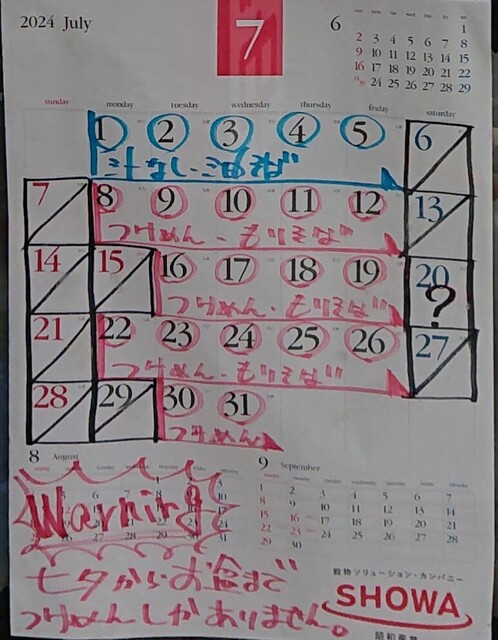 2024 July
7
6
1
2 3 4 5 6 7 8
9 10 11 12 13 14 15
16 17 18 19 20 21 22
23/30 24 25 26 27 28 29
sunday monday tuesday wednesday thursday friday saturday
1 2 3 4 5 6
汁なし・油そば
7 8 9 10 11 12 13
つけめん・もりそば
14 15 16 17 18 19 20 ?
つけめん・もりそば
21 22 23 24 25 26 27
つけめん・もりそば
28 29 30 31
つけめん
8 August
9 September
1 2 3 4 5 6 7
8 9 10 11 12 13 14
15 16 17 18 19 20 21
22 23 24 25 26 27 28
29 30
Warning
七夕からお盆まで
つけめんしかありません。
穀物ソリューション・カンパニー
SHOWA
昭和産業